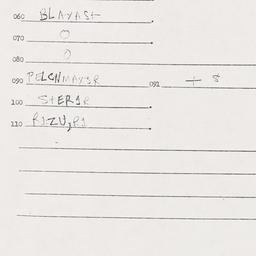 060 BLAYAST
070 0
080 0
090 PELCNMAYSR 092 + 8
100 STERIR
110 RIZU,RI